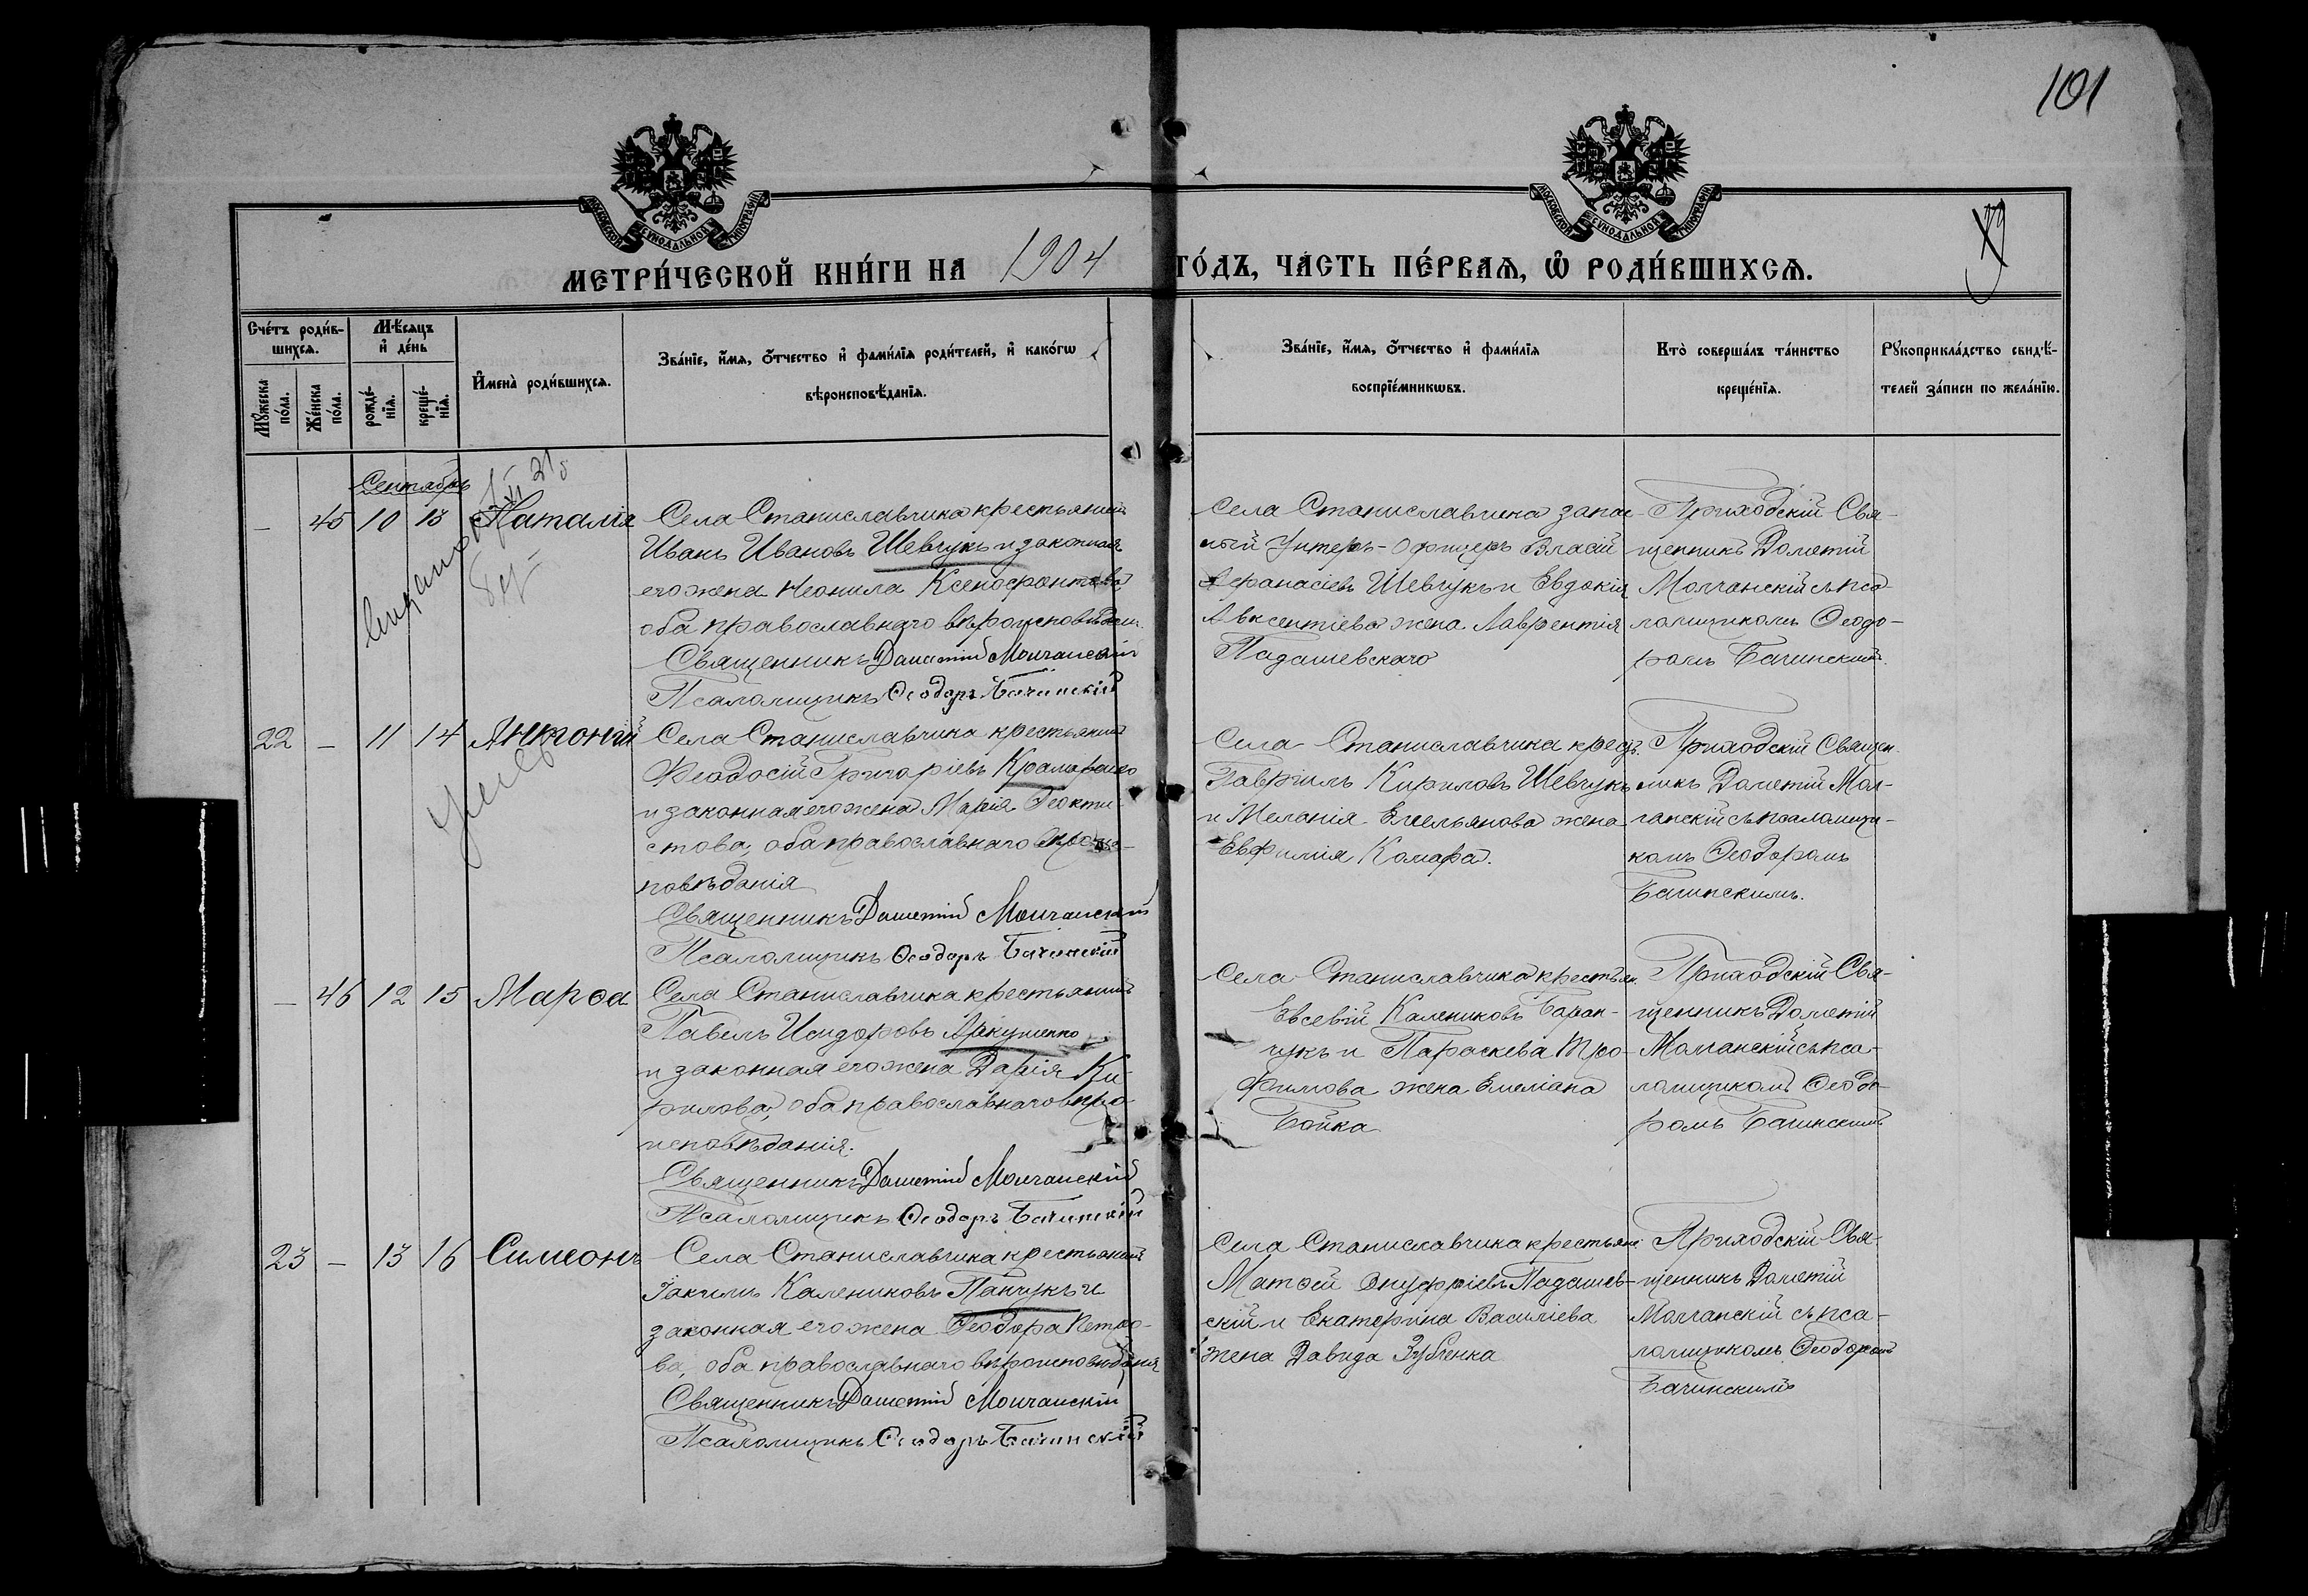 101
МОСКОВСКОЙ СУНОДАЛЬНОЙ ТИПОГРАФІИ
МОСКОВСКОЙ СУНОДАЛЬНОЙ ТИПОГРАФІИ
МЕТРИ́ЧЕСКОЙ КНИ́ГИ НА 1904 ГО́ДЪ, ЧА́СТЬ ПЕ́РВАѦ, Ѡ҆ РОДИ́ВШИХСѦ.
Сче́тъ роди́в-
шихсѧ.
Мꙋ́жеска
по́ла.
Же́нска
по́ла.
Мѣ́сѧцъ
и҆ де́нь
рожде́-
нїѧ.
креще́-
нїѧ.
И҆мена̀ роди́вшихсѧ.
Зва́нїе, и҆́мѧ, ѻ҆́тчество и҆ фами́лїѧ роди́телей, и҆ како́гѡ
вѣроисповѣ́данїѧ.
Зва́нїе, и҆́мѧ, ѻ҆́тчество и҆ фами́лїѧ
воспрїе́мникѡвъ.
Кто̀ соверша́лъ та́инство
креще́нїѧ.
Рꙋкоприкла́дство свидѣ́-
телей за́писи по жела́нїю.
Сентябрь
- 45 10 13 Наталія
Села Станиславчика крестьянинъ
Иванъ Ивановъ Шевчукъ и законная
его жена Неонила Ксенофонтова
оба православнаго вѣроисповѣдан.
Священникъ Дометій Молчанскій
Псаломщикъ Ѳеодоръ Бачинскій
Села Станиславчика запас-
ный Унтеръ-Офицеръ Власій
Афанасіевъ Шевчукъ и Евдокія
Авксентіева жена Лаврентія
Падашевскаго
Приходскій Свя-
щенникъ Дометій
Молчанскій съ пса-
ломщикомъ Ѳеодо-
ромъ Бачинскимъ.
22 - 11 14 Антоній
Села Станиславчика крестьянинъ
Феодосій Григоріевъ Крамаренко
и законная его жена Марія Ѳеокти-
стова, оба православнаго вѣроис-
повѣданія
Священникъ Дометій Молчанскій
Псаломщикъ Ѳеодоръ Бачинскій
Села Станиславчика крест.
Гавріилъ Кириловъ Шевчукъ
и Меланія Емельянова жена
Евфимія Комара.
Приходскій Священ-
никъ Дометій Мол-
чанскій съ псаломщи-
комъ Ѳеодоромъ
Бачинскимъ.
- 46 12 15 Марѳа
Села Станиславчика крестьянинъ
Павелъ Исидоровъ Аркушенко
и законная его жена Дарія Ки-
рилова, оба православнаго вѣро-
исповѣданія.
Священникъ Дометій Молчанскій
Псаломщикъ Ѳеодоръ Бачинскій
Села Станиславчика крестьян.
Евсевій Калениковъ Баран-
чукъ и Параскева Тро-
фимова жена Емеліана
Бойка
Приходскій Свя-
щенникъ Дометій
Молчанскій съ пса-
ломщикомъ Ѳеодо-
ромъ Бачинскимъ
23 - 13 16 Симеонъ
Села Станиславчика крестьянинъ
Іакимъ Калениковъ Панчукъ и
законная его жена Ѳеодора Петро-
ва, оба православнаго вѣроисповѣданія
Священникъ Дометій Молчанскій
Псаломщикъ Ѳеодоръ Бачинскій
Села Станиславчика крестьяне
Матѳей Онуфріевъ Падашев-
скій и Екатерина Василіева
жена Давида Зубченка
Приходскій Свя-
щенникъ Дометій
Молчанскій съ пса-
ломщикомъ Ѳеодоромъ
Бачинскимъ